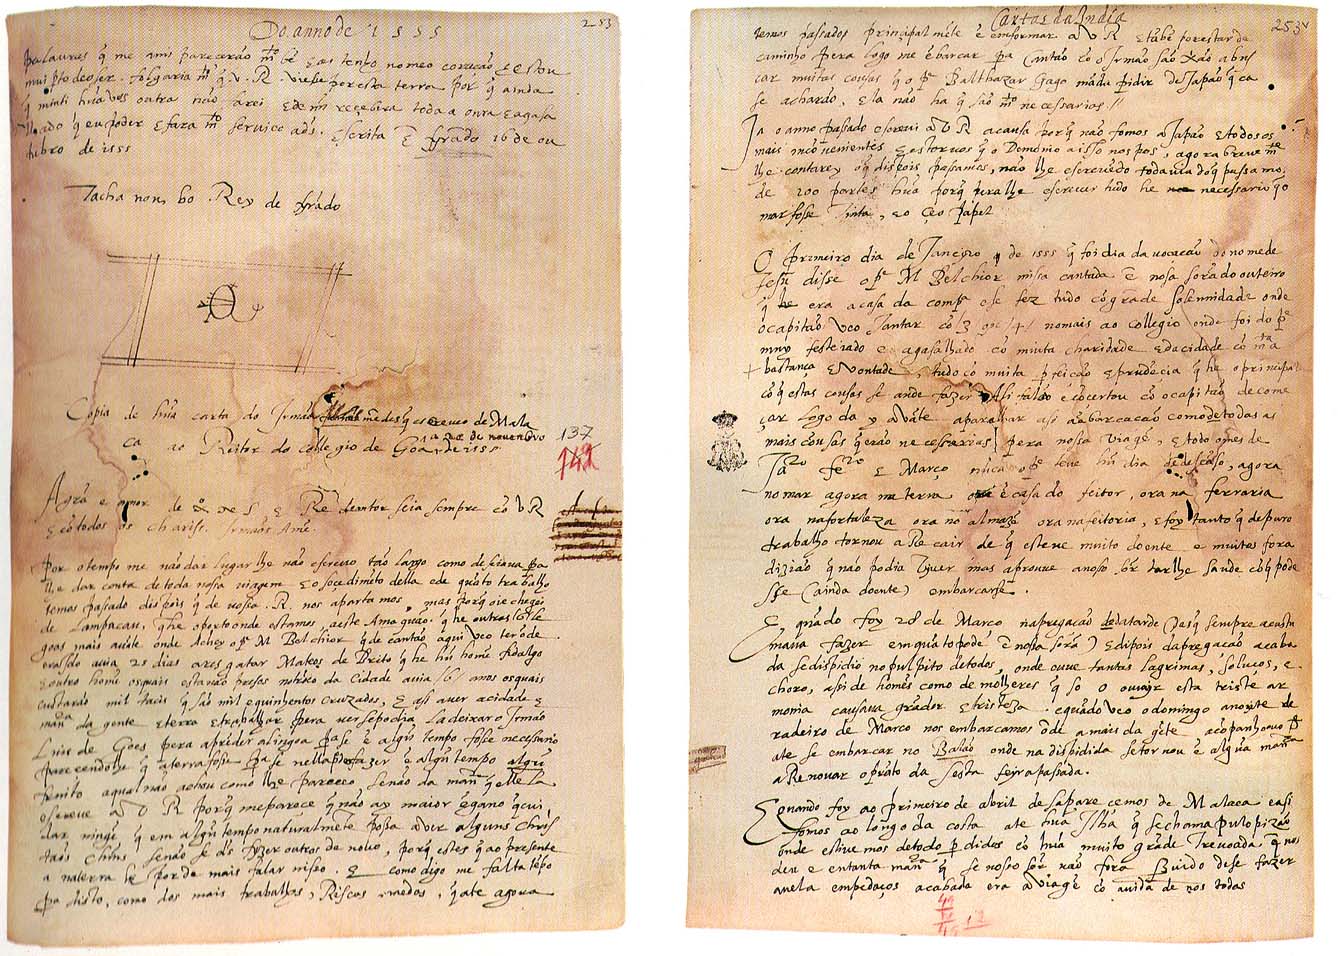 Do anno de 1555
253
palauras q̃ me ami pareceraõ mto bẽ e as tenho no meo coraçaõ e estou
muipto de o ser. folgaria mto q̃ V. R. viese por esta terra por q̃ ainda
q̃ minti hũa ves outra naõ farei e de mĩ recebera toda a onra e agasa
lhado q̃ eu poder e fara mto serviço a ds. escrita ẽ frãdo 16 de ou
tubro de 1555
Tacha non, bo Rey de frãdo
Copia de hũa carta do Irmaõ mẽdes q̃ escreueo de Mala
ca ao Reitor do collegio de Goa de 1555
a 20 de nouembro
137
Agrã e amor de e Redemtor seia sempre cõ V R
e cõ todos os chariss. Irmaõs Amẽ.
Por o tempo me naõ dar lugar lhe naõ escreuo taõ largo como deseiaua pa
lhe dar conta de toda nossa viagem e o soçedimẽto della e de quãto trabalho
temos pasado dispois q̃ de vossa. R. nos apartamos, mas porq̃ oie chegei
de Lampacau. q̃ he o porto onde estamos, a este Amaquaõ. q̃ he outras legoas
goas mais auãte onde achey o pe M Belchior q̃ de cantaõ aqui veo ter õde
auia 25 dias a resgatar Mateos de Brito q̃ he hũ homẽ fidalgo
e outro homẽ os quais estavaõ presos no trõco da cidade auia /6/ anos os quais
custaraõ mil taeis q̃ saõ mil e quinhentos cruzados, e asi a uer a cidade e
manra da gente e terra e trabalhar pera uer se podia la deixar o Irmaõ
Luis de Goes pera aprẽder a lingoa pa se ẽ algũ tempo fosse necessario
parecendolhe q̃ a terra fosse pa se nella fazer ẽ algũ tempo algũ
fruito a qual naõ achou como lhe pareceo senaõ da manra q̃ elle la
escreue a V R porq̃ me parece q̃ naõ ay maior ẽgano q̃ cui
dar ninguẽ q̃ em algũ tempo naturalmẽte possa a ver alguns chris
taõs chins senaõ se ds fizer outros de nouo, porq̃ estes q̃ ao presente
a na terra he por de mais falar nisso. e como digo me falta tẽpo
pa disto, como dos mais trabalhos, Riscos, medos, q̃ ate agora
Cartas da India
253v
temos pasados principalmẽte ẽ emformar a V R e tãbẽ por estar de
caminho pera logo me ẽbarcar pa Cantaõ cõ o Irmaõ Saõ a bus
car muitas cousas q̃ o pe Balthazar Gago mãda pidir de Japaõ q̃ ca
se acharaõ, e la naõ ha q̃ saõ mto necessarias.//
Ja o anno passado escreui a V R a causa porq̃ naõ fomos a Japaõ e todos os
mais incõuenientes e estoruos q̃ o Demonio a isso nos pos, agora breuemte
lhe contarey o q̃ dispois passamos, naõ lhe escreuẽdo todauia do q̃ passamos
de 100 partes hũa porq̃ pera lhe escreuer tudo he necessario q̃ o
mar fosse tinta, e o çeo papel
O primeiro dia de Janeiro de 1555 q̃ foi dia da uocacaõ do nome de
Jesũ disse o pe M Belchior missa cantada ẽ nosa sora do outeiro
q̃ era a casa da compa e se fez tudo cõ grãde solemnidade onde
o capitaõ veo Jantar cõ 3 ou /4/ nomais ao collegio onde foi do pe
muy festeiado e agasalhado cõ muita charidade e da cidade cõ mta
bastança e vontade, tudo cõ muita pfeicaõ e prudẽcia q̃ he o principal
cõ q̃ estas cousas se ande fazer. Ali falou e cõcertou cõ o capitaõ de come
çar logo dy auãte aparalhar asi a ẽbarcacaõ como de todas as
mais cousas q̃ eraõ necessarias pera nossa viagẽ, e todo o mes de
Jaro fero e Março nũca o pe teue hũ dia de descãso, agora
no mar agora na terra ora ẽ casa do feitor, ora na ferraria
ora na fortaleza ora no almazẽ ora na feitoria, e foy tanto q̃ de puro
trabalho tornou a Recair de q̃ esteue muito doente e muitos fora
diziaõ q̃ naõ podia viuer mas aprouue a noso sõr darlhe saude cõ q̃ pode
sse (ainda doente) embarcarse.
E quãdo foy 28 de Março na pregacaõ da tarde (as q̃ sempre acustu
maua fazer em quãto pode ẽ nosa sora) e dipois da pregacaõ acaba
da se dispidio no pulpito de todos, onde ouue tantas lagrimas, soluços, e
choro, assi de homẽs como de molheres q̃ so o ouuir esta triste ar
monia causaua grãdor e tristeza. e quãdo veo o domingo a noyte de
radeiro de Marco nos embarcamos õde a mais da gẽte acõpanhou o pe
ate se embarcar no Balaõ onde na dispidida se tornou ẽ algũa manra
a Renouar o prãto da sesta feyra passada.
E quando foy ao primeiro de abril desaparecemos de Malaca e asi
fomos ao longo da costa ate hũa Ilha q̃ se chama pulo pizaõ
onde estiuemos de todo pdidos cõ hũa muito grãde treuoada, q̃ nos
deu e em tanta manra q̃ se nosso sõr naõ fora seruido de se fazer
a uela em pedaços acabada era a viagẽ cõ a uida de nos todos